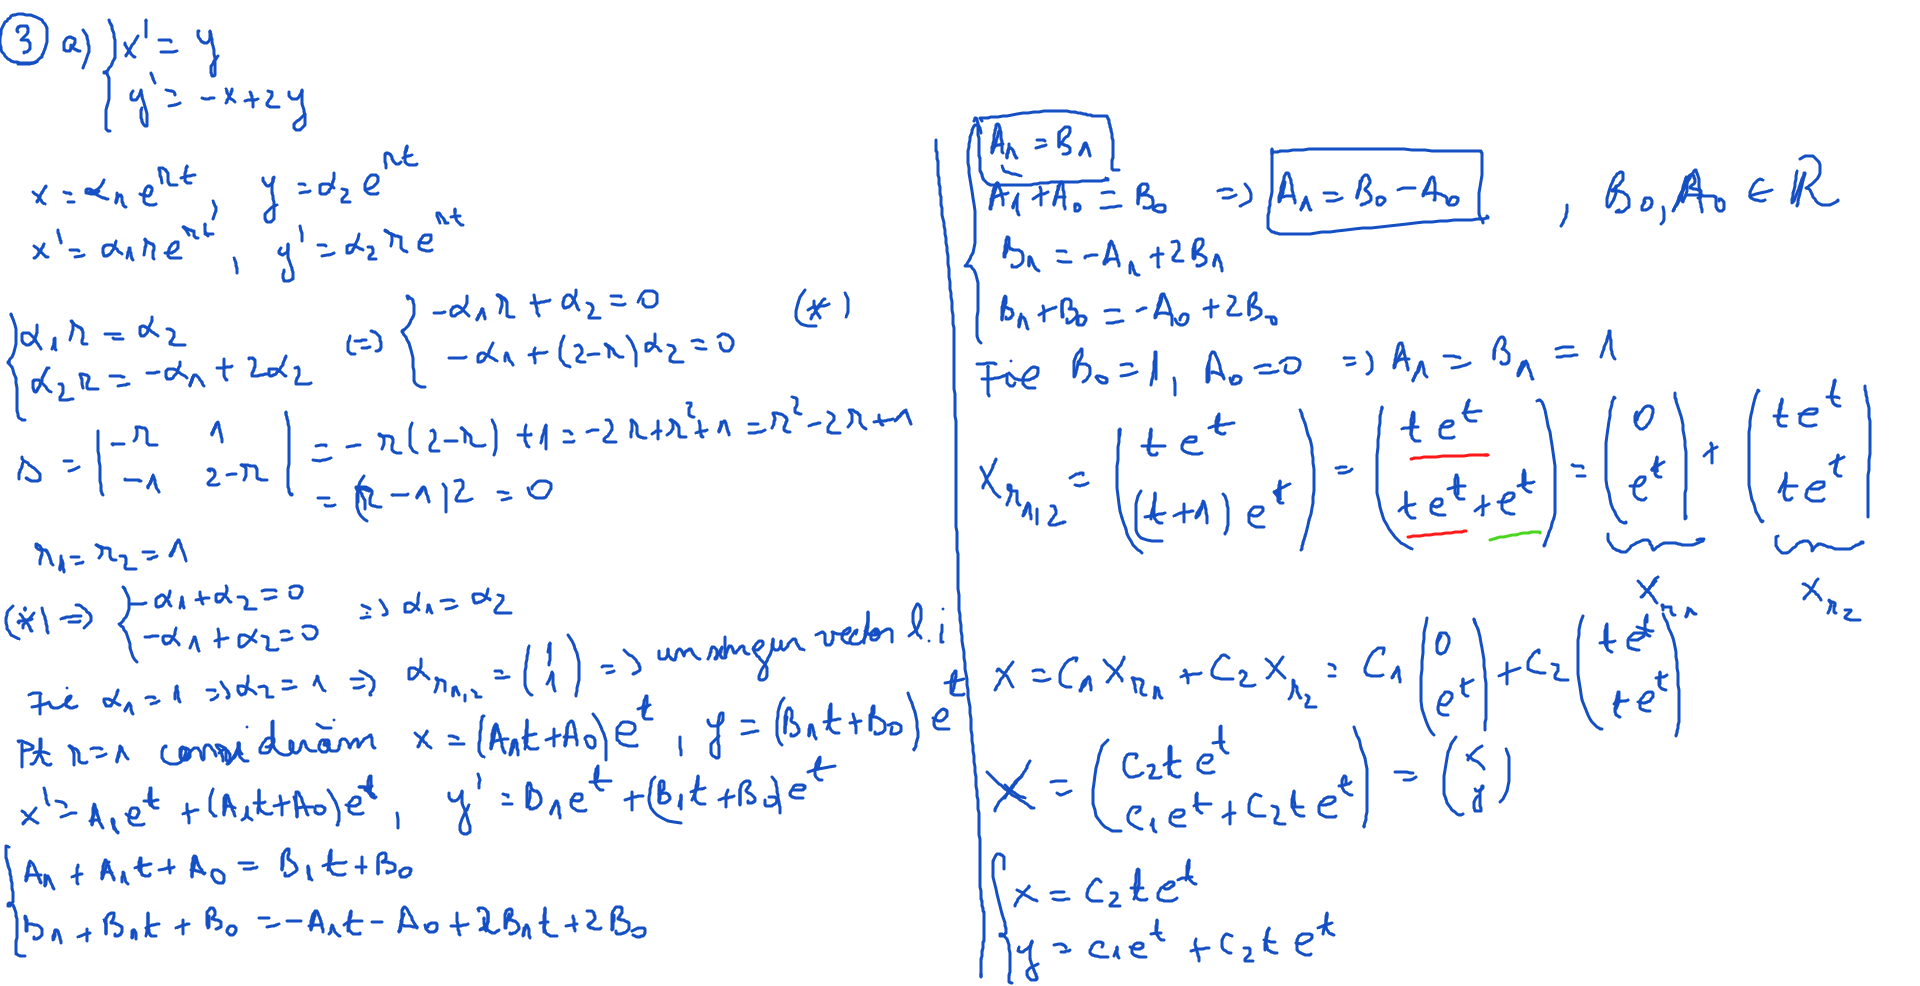 ③ a) { x' = y
y' = -x+2y
x = α₁ e^{rt}, y = α₂ e^{rt}
x' = α₁ r e^{rt}, y' = α₂ r e^{rt}
{ α₁ r = α₂
α₂ r = -α₁ + 2α₂ (=) { -α₁ r + α₂ = 0 (*)
-α₁ + (2-r) α₂ = 0
Δ = | -r 1 | = -r(2-r) + 1 = -2r+r²+1 = r²-2r+1
| -1 2-r | = (r-1)2 = 0
r₁ = r₂ = 1
(*) => { -α₁+α₂ = 0
-α₁+α₂ = 0 => α₁ = α₂
Fie α₁ = 1 => α₂ = 1 => α_{r₁,₂} = (1 1) => un singur vector l.i
Pt r=1 considerăm x = (A₁t+A₀)e^t, y = (B₁t+B₀)e^t
x' = A₁e^t + (A₁t+A₀)e^t, y' = B₁e^t + (B₁t+B₀)e^t
{ A₁ + A₁t + A₀ = B₁t + B₀
B₁ + B₁t + B₀ = -A₁t - A₀ + 2B₁t + 2B₀
{ A₁ = B₁
A₁ + A₀ = B₀ => A₁ = B₀ - A₀ , B₀, A₀ ∈ R
B₁ = -A₁ + 2B₁
B₁+B₀ = -A₀ + 2B₀
Fie B₀ = 1, A₀ = 0 => A₁ = B₁ = 1
X_{r₁,₂} = (t e^t (t+1) e^t) = (t e^t t e^t + e^t) = (0 e^t) + (t e^t t e^t)
X_{r₁} X_{r₂}
X = C₁ X_{r₁} + C₂ X_{r₂} = C₁ (0 e^t) + C₂ (t e^t t e^t)
X = (C₂ t e^t C₁ e^t + C₂ t e^t) = (x y)
{ x = C₂ t e^t
y = C₁ e^t + C₂ t e^t